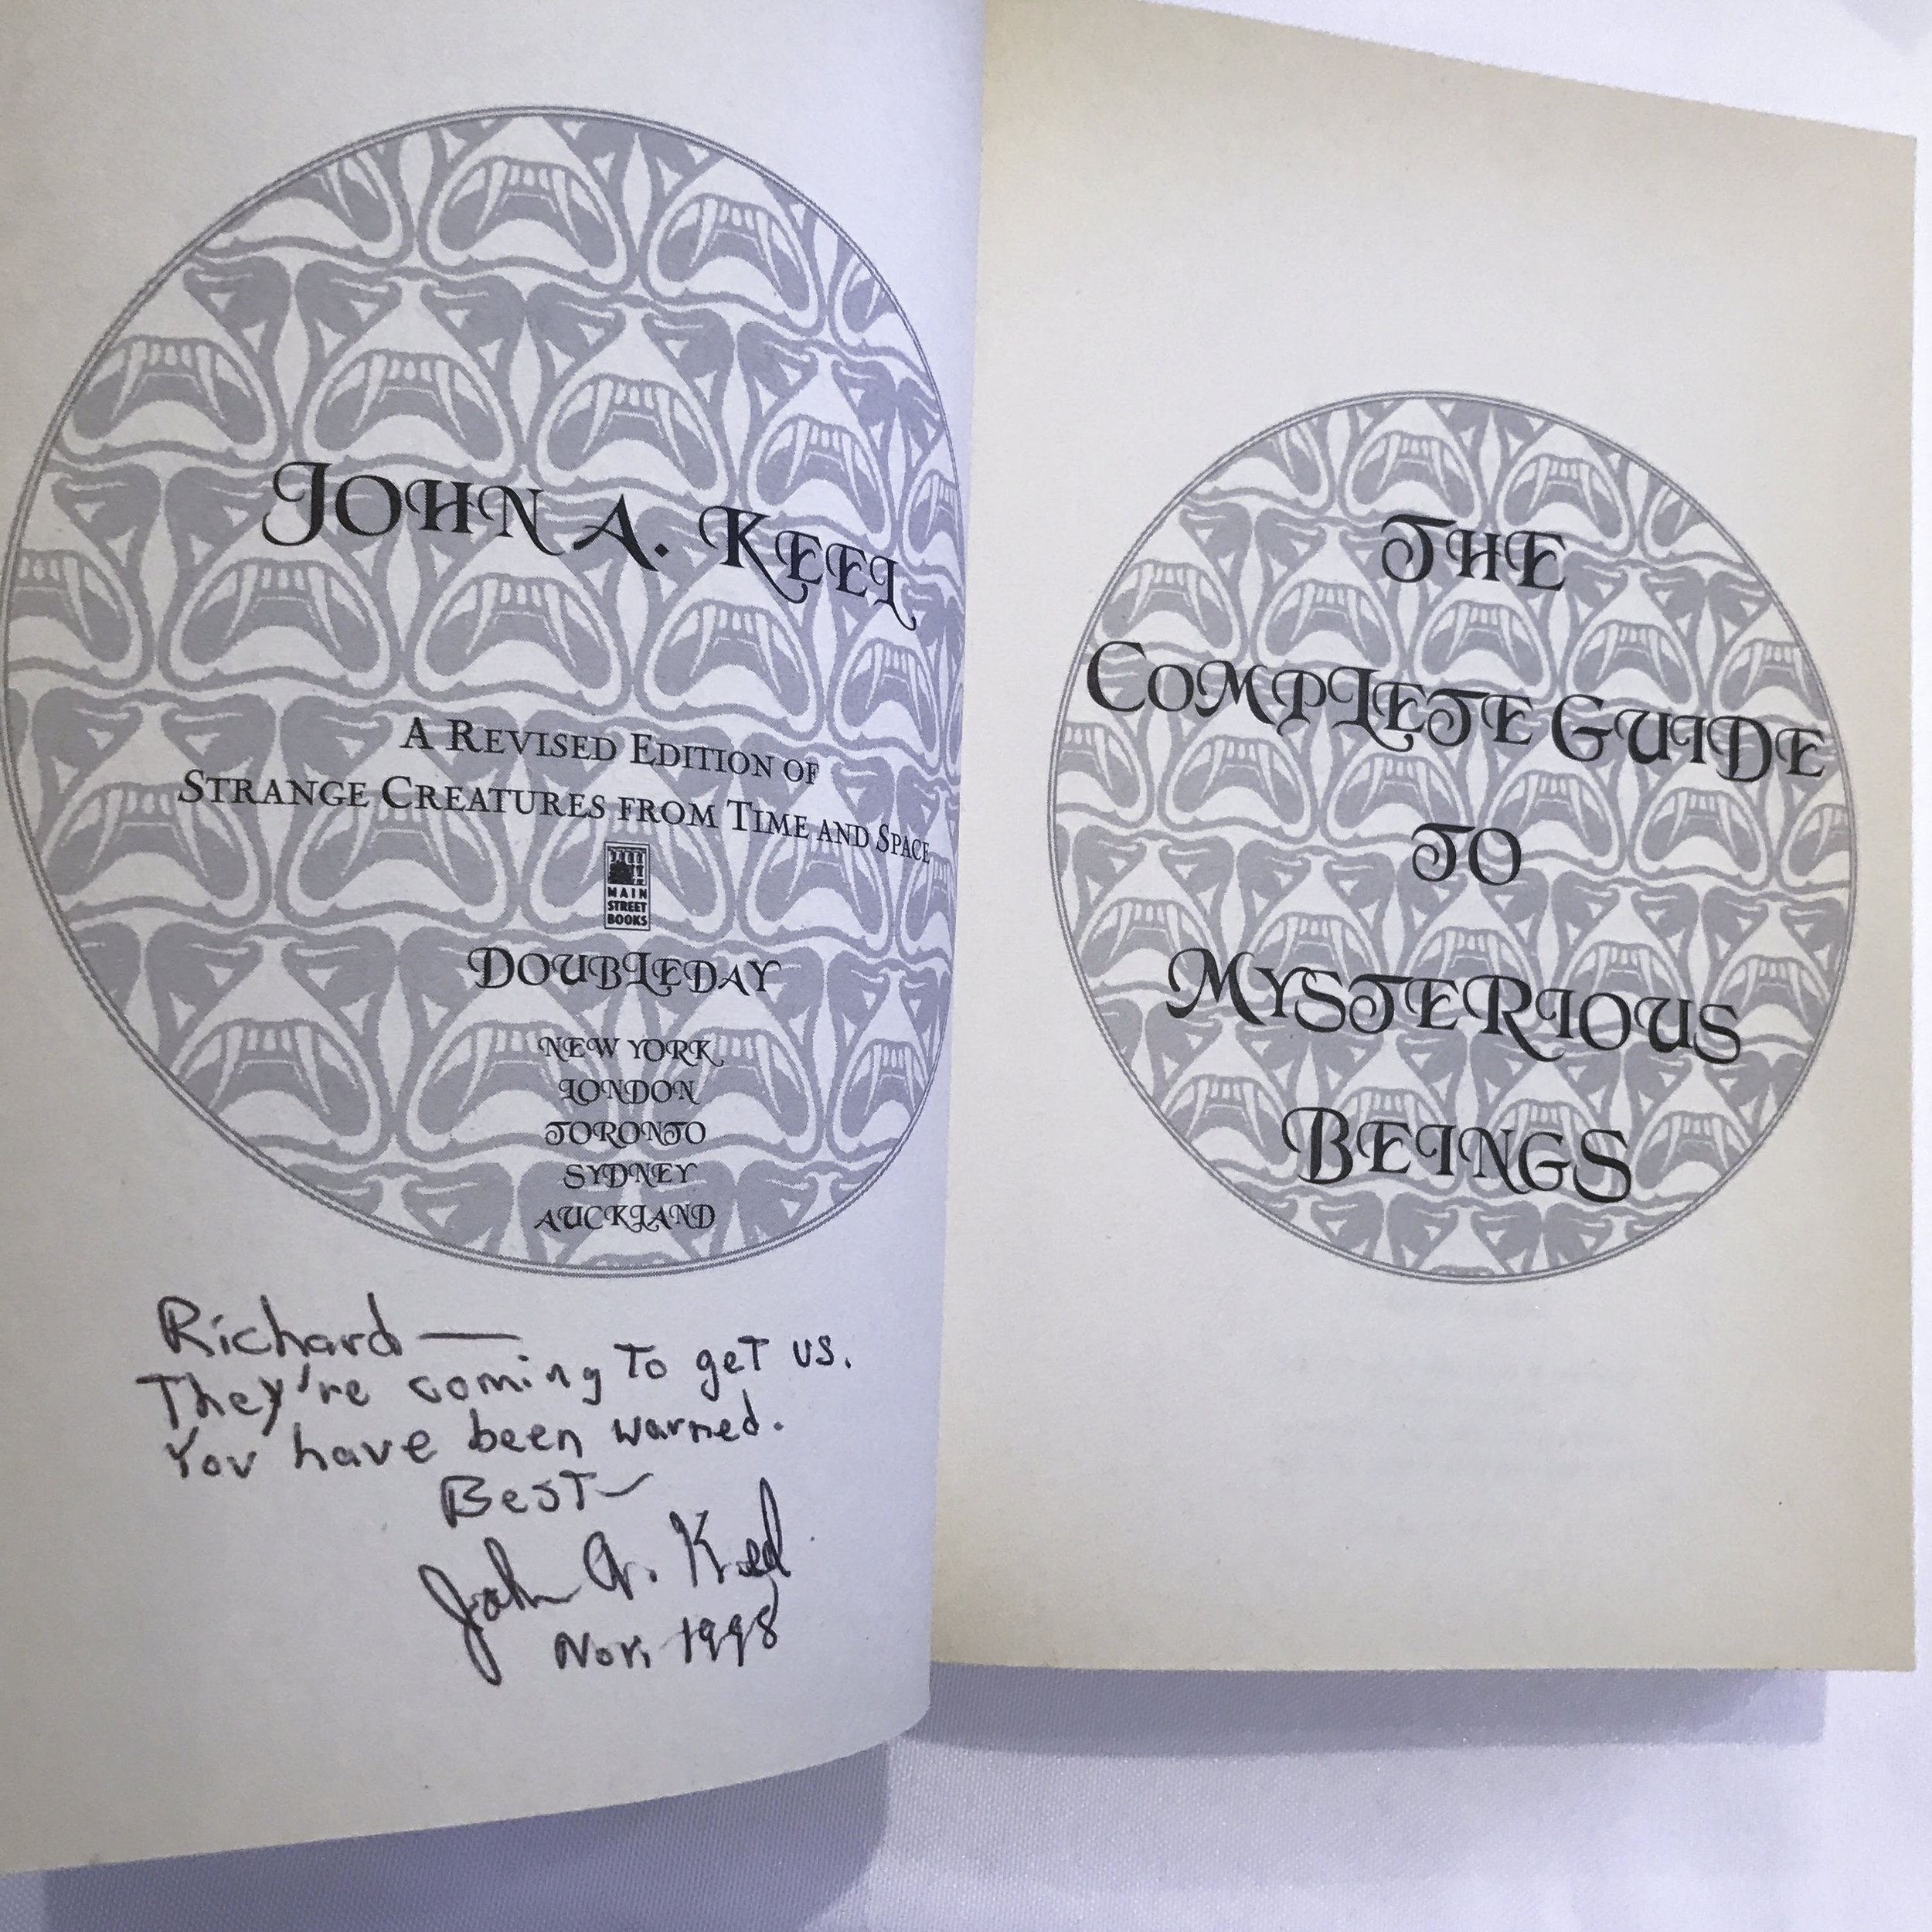 JOHN A. KEEL
A REVISED EDITION OF
STRANGE CREATURES FROM TIME AND SPACE
MAIN
STREET
BOOKS
DOUBLEDAY
NEW YORK
LONDON
TORONTO
SYDNEY
AUCKLAND
Richard —
They're coming to get us.
You have been warned.
Best
John A. Keel
Nov. 1998
THE
COMPLETE GUIDE
TO
MYSTERIOUS
BEINGS